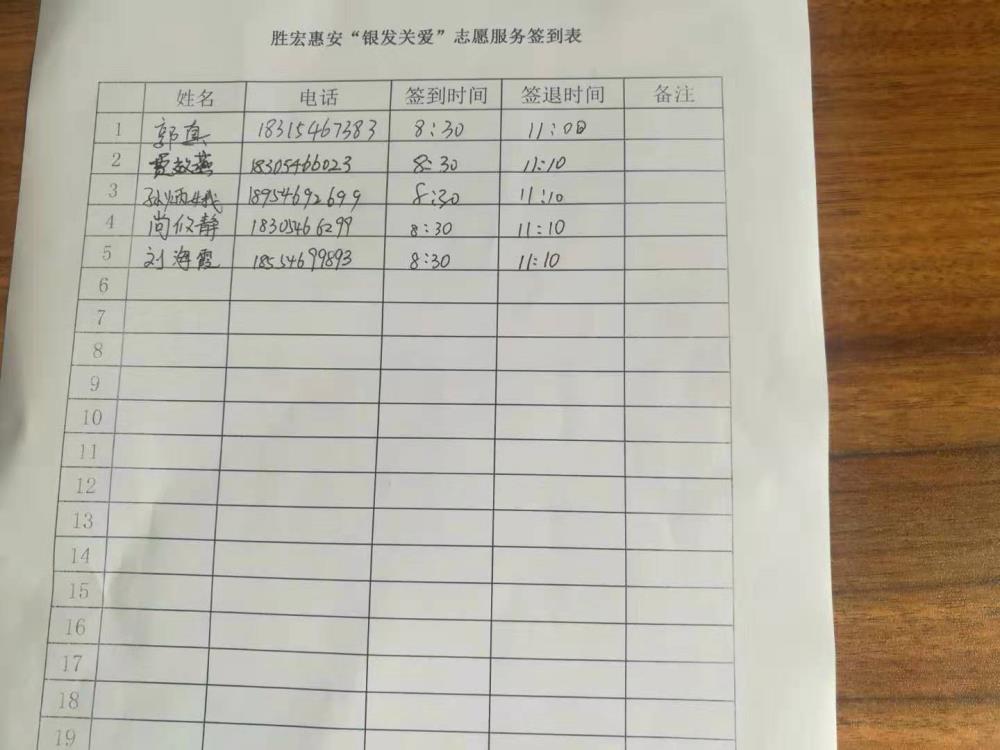 胜宏惠安“银发关爱”志愿服务签到表
姓名 电话 签到时间 签退时间 备注
1 郭真 18315467383 8:30 11:00
2 贾敬燕 18305466023 8:30 11:10
3 孙炳娥 18954692699 8:30 11:10
4 尚仪静 18305466299 8:30 11:10
5 刘海霞 18554699893 8:30 11:10
6
7
8
9
10
11
12
13
14
15
16
17
18
19